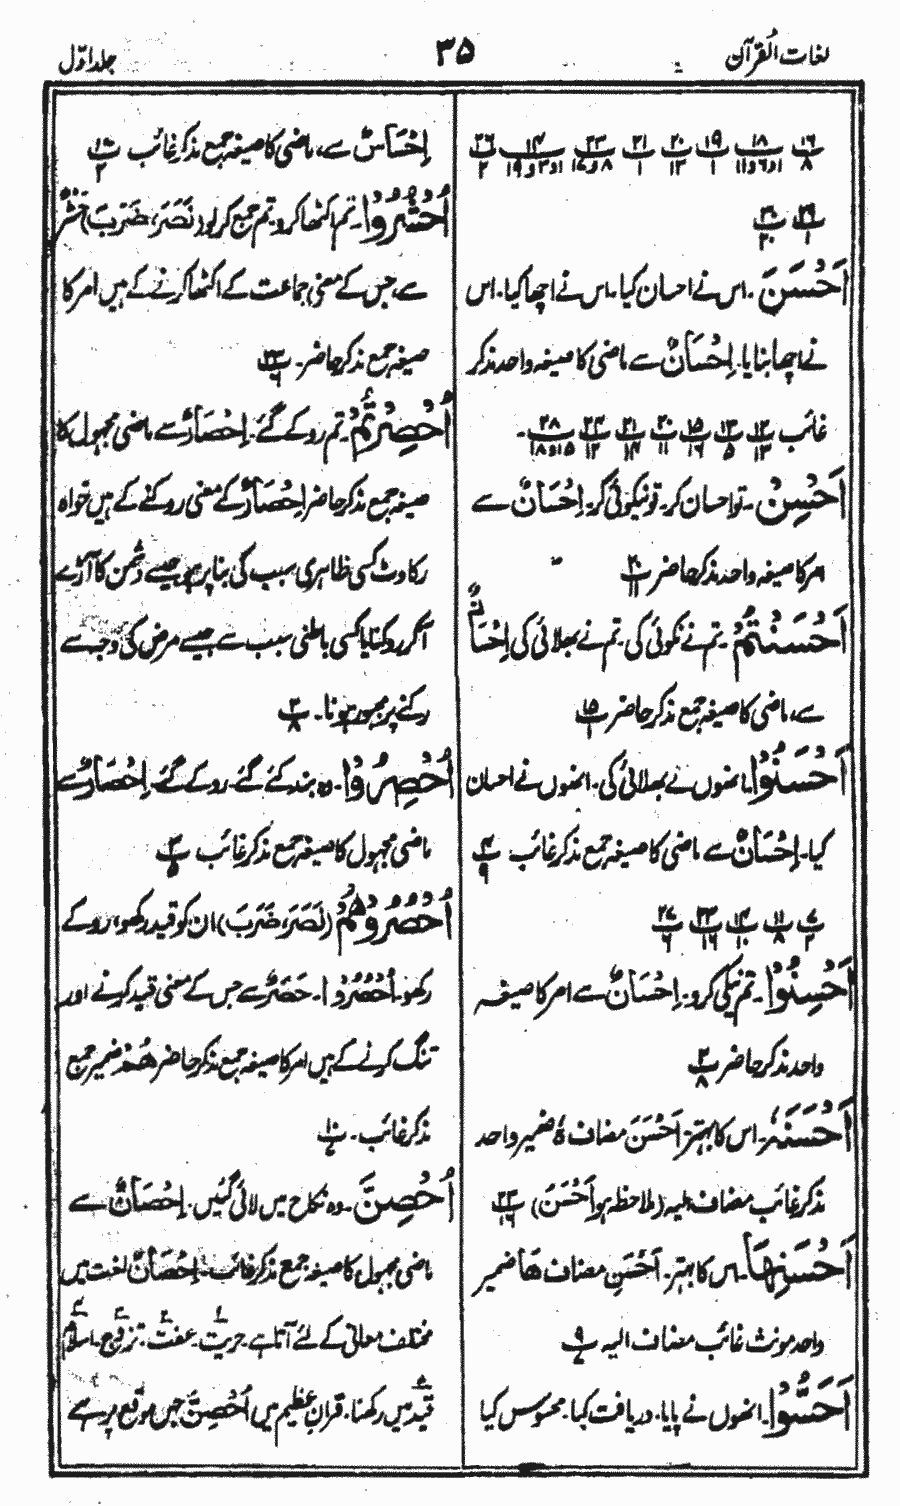 لغات القرآن
۳۵
جلد اوّل
۱۶/۸ ۱۸/۱و۶و۱۱ ۱۹/۱ ۲۰/۱۳ ۲۱/۱ ۲۳/۸و۱۷ ۱۴/۱و۳و۱۹ ۲۶/۲
۲۹/۱ ۳۰/۲۰
اَحْسَنَ ۔ اس نے احسان کیا۔ اس نے اچھا کیا۔ اس
نے اچھا بنایا۔ اِحْسَانٌ سے ماضی کا صیغہ واحد مذکر
غائب ۱۲/۱۳ ۱۳/۵ ۱۵/۱۶ ۲۰/۱۱ ۲۱/۱۴ ۲۴/۱۲ ۲۸/۱۵و۱۸ ۔
اَحْسِنْ ۔ تو احسان کر۔ تو نیکوئی کر۔ اِحْسَانٌ سے
امر کا صیغہ واحد مذکر حاضر ۲۰/۱۱
اَحْسَنْتُمْ ۔ تم نے نکوئی کی۔ تم نے بھلائی کی اِحْسَانٌ
سے، ماضی کا صیغہ جمع مذکر حاضر ۱۵/۱
اَحْسَنُوْا ۔ انھوں نے بھلائی کی۔ انھوں نے احسان
کیا۔ اِحْسَانٌ سے ماضی کا صیغہ جمع مذکر غائب ۴/۹
۷/۲ ۱۱/۸ ۱۴/۱۰ ۲۳/۱۶ ۲۷/۶
اَحْسِنُوْا ۔ تم نیکی کرو۔ اِحْسَانٌ سے امر کا صیغہ
واحد مذکر حاضر ۲/۸
اَحْسَنَہٗ ۔ اس کا بہتر۔ اَحْسَنَ مضاف ہٗ ضمیر واحد
مذکر غائب مضاف الیہ (ملاحظہ ہو اَحْسَنَ) ۲۳/۱۶
اَحْسَنِھَا ۔ اس کا بہتر۔ اَحْسَنِ مضاف ھَا ضمیر
واحد مونث غائب مضاف الیہ ۹/۷
اَحَسُّوْا ۔ انھوں نے پایا۔ دریافت کیا۔ محسوس کیا
اِحْسَاسٌ سے، ماضی کا صیغہ جمع مذکر غائب ۱۷/۲
اُحْشُرُوْا ۔ تم اکٹھا کرو۔ تم جمع کرلو (نَصَرَ، ضَرَبَ) حَشْرٌ
سے، جس کے معنی جماعت کے اکٹھا کرنے کے ہیں امر کا
صیغہ جمع مذکر حاضر۔ ۲۳/۶
اُحْصِرْتُمْ ۔ تم روکے گئے۔ اِحْصَارٌ سے ماضی مجہول کا
صیغہ جمع مذکر حاضر اِحْصَارٌ کے معنی روکنے کے ہیں خواہ
رکاوٹ کسی ظاہری سبب کی بنا پر ہو جیسے دشمن کا آڑے
آکر روکنا یا کسی باطنی سبب سے جیسے مرض کی وجہ سے
رکنے پر مجبور ہونا۔ ۲/۸
اُحْصِرُوْا ۔ وہ بند کئے گئے۔ روکے گئے۔ اِحْصَارٌ سے
ماضی مجہول کا صیغہ جمع مذکر غائب ۳/۵
اُحْصُرُوْھُمْ (نَصَرَ، ضَرَبَ) ان کو قید رکھو، روکے
رکھو۔ اُحْصُرُوْا ۔ حَصْرٌ سے جس کے معنی قید کرنے اور
تنگ کرنے کے ہیں امر کا صیغہ جمع مذکر حاضر ھُمْ ضمیر جمع
مذکر غائب۔ ۱۰/۷
اُحْصِنَّ ۔ وہ نکاح میں لائی گئیں۔ اِحْصَانٌ سے
ماضی مجہول کا صیغہ جمع مذکر غائب۔ اِحْصَانٌ لغت میں
مختلف معانی کے لئے آتا ہے۔ حریت۔ عفت۔ تزوّج۔ اسلام
قید میں رکھنا۔ قرآن عظیم میں اُحْصِنَّ جس موقع پر ہے